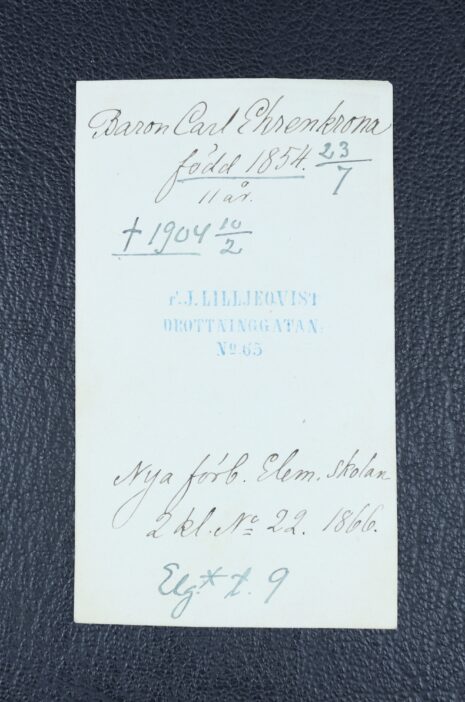 Baron Carl Ehrenkrona
född 1854. 23/7
11 år.
† 1904 10/2
J. LILLJEQVIST
DROTTNINGGATAN.
No 65
Nya förb. Elem. skolan
2 kl. No 22. 1866.
9